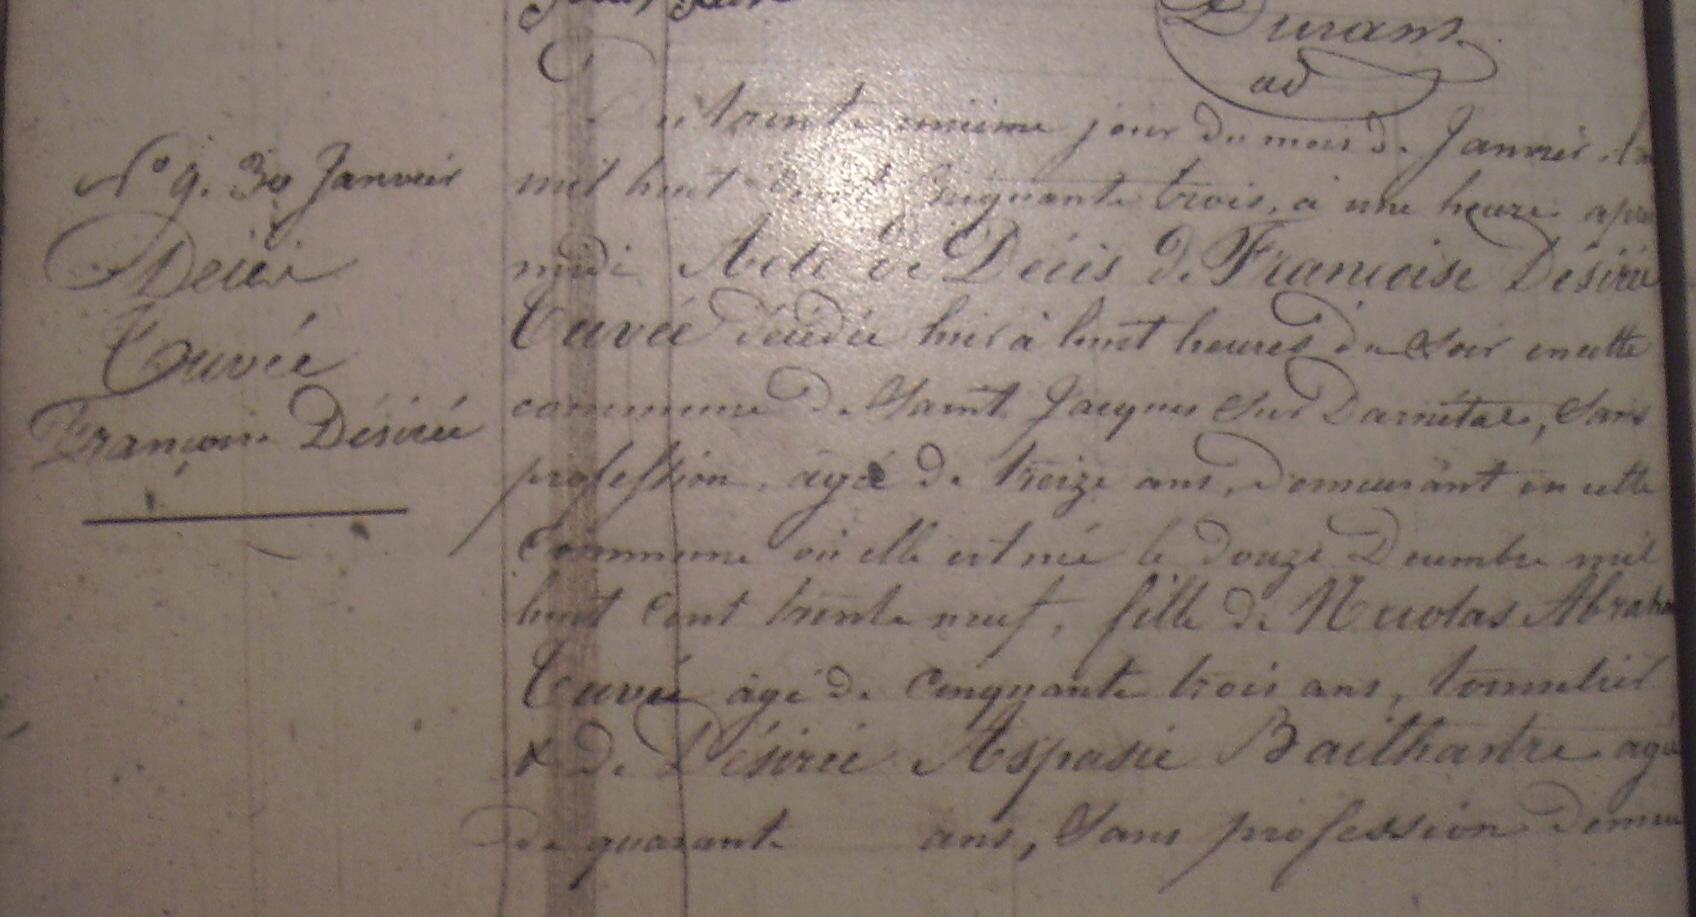 Durant
ad
N° 9. 30 Janvier
Décès
Cuvée
Françoise Désirée
Du trente unième jour du mois de Janvier, l'an
mil huit cent cinquante trois, à une heure après
midi Acte de Décès de Françoise Désirée
Cuvée décédée hier à huit heures du soir en cette
commune de Saint Jacques sur Darnétal, sans
profession, âgée de treize ans, demeurant en cette
commune où elle est née le douze Décembre mil
huit cent trente neuf, fille de Nicolas Abraham
Cuvée âgé de cinquante trois ans, tonnelier
& de Désirée Aspasie Bailhastre agée
de quarante ans, sans profession demeu